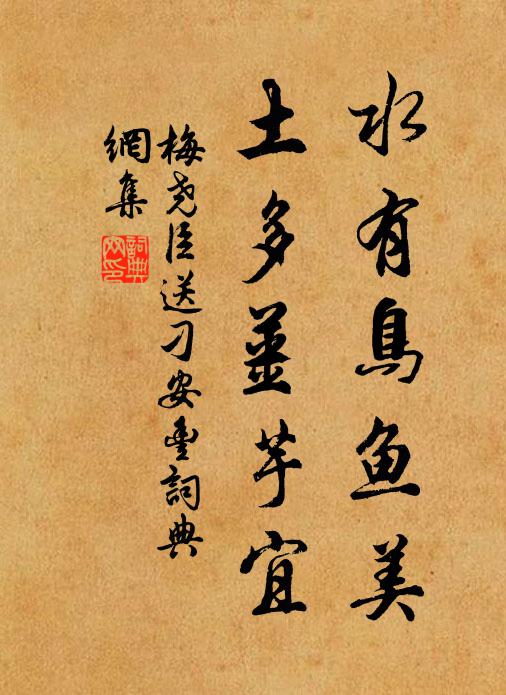 水有鳥魚美
土多薑芋宜
梅堯臣送刁安豐詞典
網集
詞典
网印